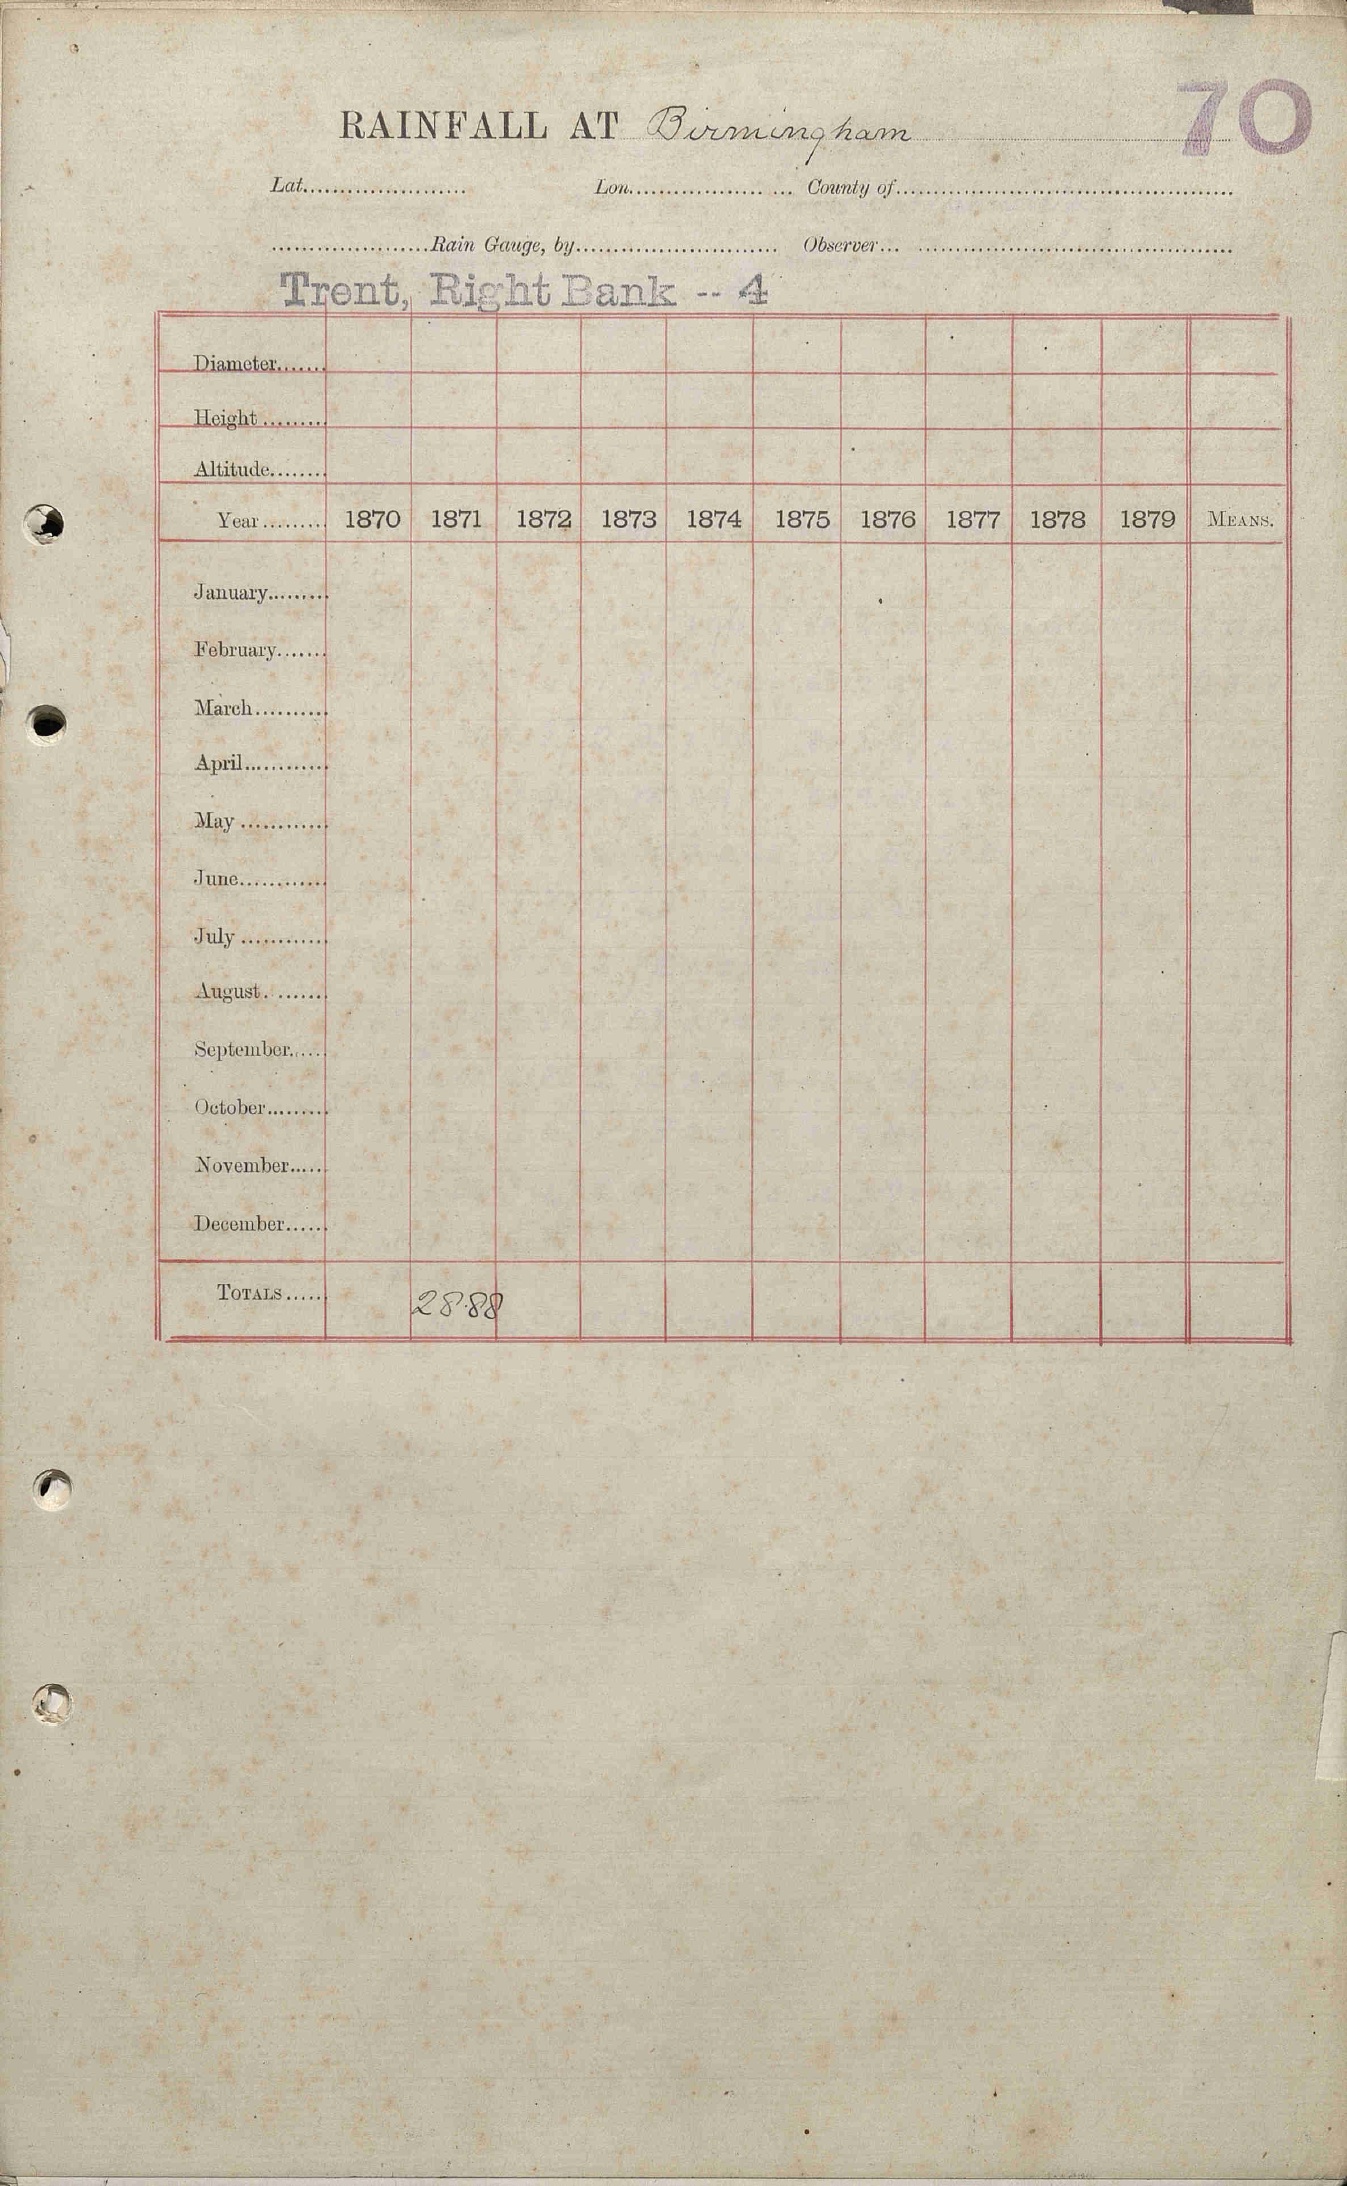 70
RAINFALL AT Birmingham
Lat...................... Lon.................. ... County of.............................................
.....................Rain Gauge, by........................... Observer... ..........................................
Trent, Right Bank -- 4
Diameter.......
Height.........
Altitude........
Year......... 1870 1871 1872 1873 1874 1875 1876 1877 1878 1879 MEANS.
January.........
February.......
March..........
April............
May ............
June............
July ............
August. .......
September.....
October.........
November.....
December......
TOTALS..... 28.88